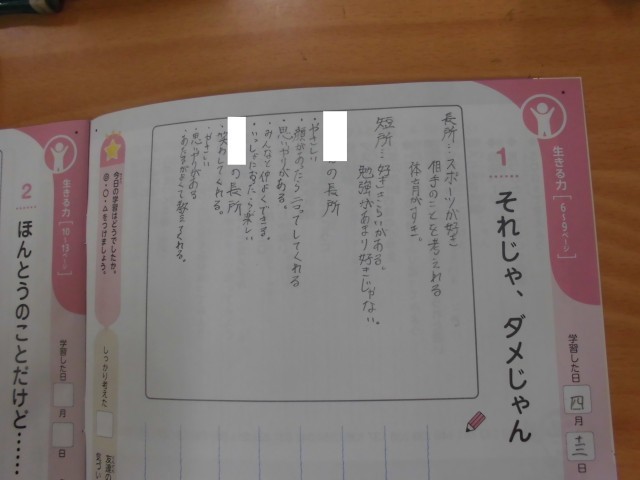 生きる力
[6〜9ページ]
1
それじゃ、ダメじゃん
学習した日
四
月
十三
日
長所…スポーツが好き
相手のことを考えられる
体育がすき。
短所…好ききらいがある。
勉強があまり好きじゃない。
の長所
・やさしい
・思いやりがある。
・みんなと仲よくできる。
・いっしょにおったら楽しい
の長所
・笑わしてくれる。
・やさしい
・思いやりがある
・あたまがよくて教えてくれる。
今日の学習はどうでしたか。
◎・○・△をつけましょう。
しっかり考えた
友達の
生きる力
[10〜13ページ]
2
ほんとうのことだけど……
学習した日
月
日